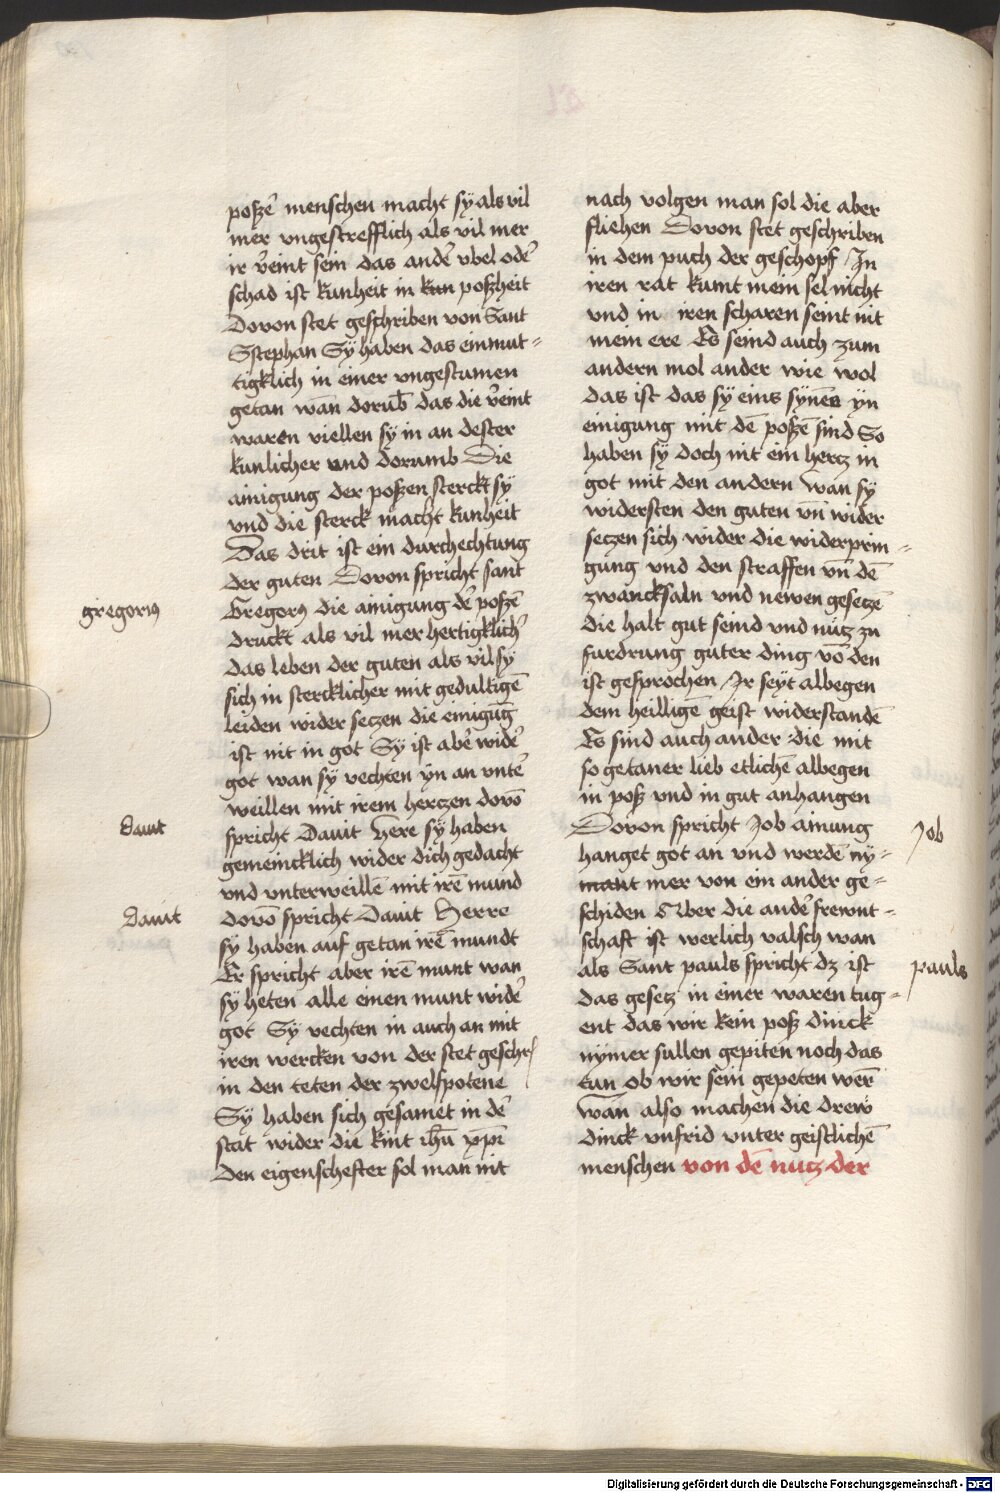 poßze᷑ menschen macht sÿ als vil
mer vngestrefflich als vil mer
ir v᷑eint sein das ande᷑ vbel ode᷑
schad ist kunheit in poßheit
Dovon stet geschriben von Sant
Sstephan Sÿ haben das einmut=
tigklich in einer vngestumen
getan wan̄ dorub̄ das die v᷑eint
waren viellen sÿ in an dester
kunlicher vnd dorumb Die
ainigung der poßzen sterckt sÿ
vnd die sterck macht kunheit
Das drit ist ein durchechtung
der guten Dovon spricht sant
Gregorꝰ die ainigung de᷑ poßzē
druckt als vil mer hertigklich᷑
das leben der guten als vil sÿ
sich in stercklicher mit gedultigē
leiden wider seczen die einigūg
ist nit in got Sÿ ist abe᷑ wide᷑
got wan sÿ vechten ÿn an vnte᷑
weillen mit irem herczen dovō
spricht Dauit here sÿ haben
gemeincklich wider dich gedacht
vnd vnterweillē mit irē mund
dovō spricht Dauit Herre
sÿ haben auf getan irē mundt
Er spricht aber irē munt wan
sÿ heten alle einen munt wide᷑
got Sÿ vechten in auch an mit
iren wercken von der stet geschr̄
in den teten der zwelfpotene
Sÿ haben sich gesamet in de᷑
stat wider die kint ih̄u xp̄i
Den eigenschefter sol man nit
gregoriꝰ
dauit
dauit
nach volgen man sol die aber
fliehen Dovon stet geschriben
in dem puch der geschopf / In
iren rat kumt mein sel nicht
vnd in iren scharen seint nit
mein ere Es seind auch zum
andern mol ander wie wol
das ist das sÿ eins sÿnes ÿn
einigung mit dē poßzē sind So
haben sÿ doch nit ein hercz in
got mit den andern wan sÿ
widersten den guten vn̄ wider
seczen sich wider die widerprin=
gung vnd den straffen vn̄ dē
zwancksaln vnd newen gesetzē
die halt gut seind vnd nücz zu
furdrung guter ding vō den
ist gesprochen / Ir seÿt albegen
dem heilligē geist widerstandē
Es sind auch ander die mit
so getaner lieb etlichē albegen
in poß vnd in gut anhangen
Dovon spricht Job ainung
hanget got an vnd werdē nÿ=
mant mer von ein ander ge=
schiden Aber die ande᷑ frewnt=
schaft ist werlich valsch wan
als Sant pauls spricht dz ist
das gesecz in einer waren tug=
ent das wir kein poß dinck
nÿmer sullen gepiten noch das
tun ob wir sein gepeten wer̄
wan̄ also machen die drew
dinck vnfrid vnter geistlichē
menschen von dē nutz der
Job
pauls
Digitalisierung gefördert durch die Deutsche Forschungsgemeinschaft - DFG